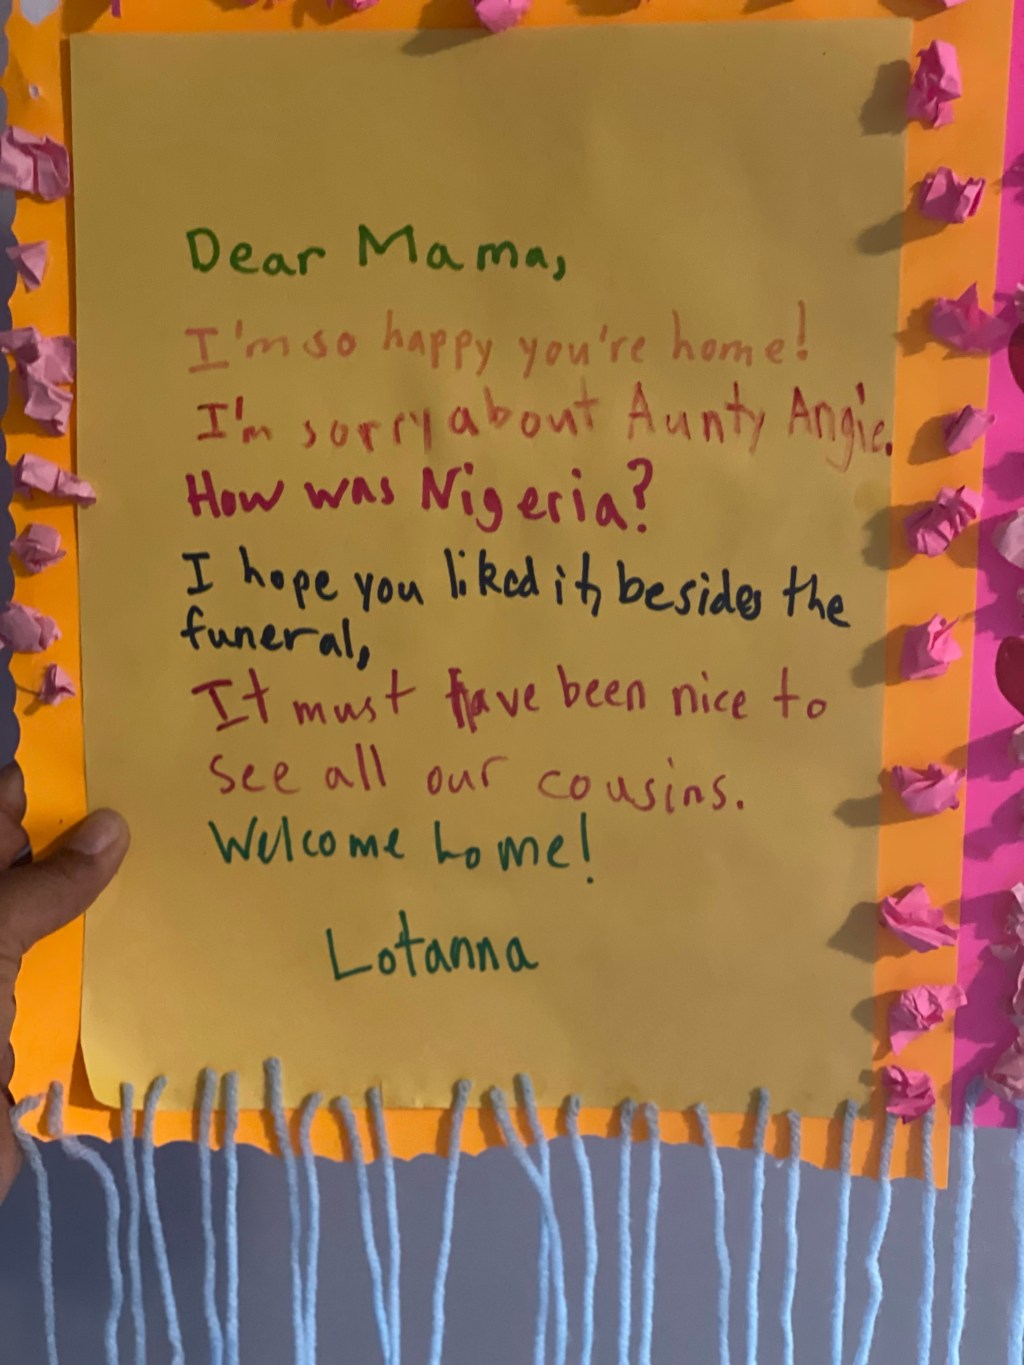 Dear Mama,
I'm so happy you're home!
I'm sorry about Aunty Angie.
How was Nigeria?
I hope you liked it, besides the
funeral,
It must have been nice to
see all our cousins.
Welcome home!
Lotanna